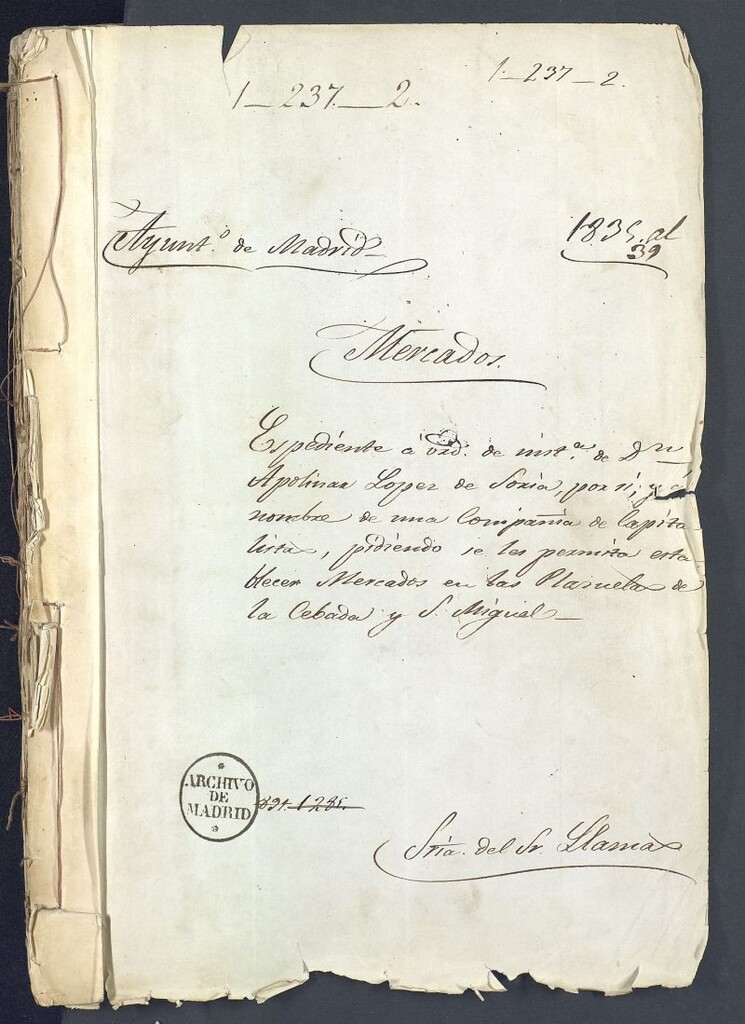 1-237-2.
1-237-2.
Ayunt.º de Madrid
1835 al
39
Mercados.
Espediente á de inst.ª de Dn
Apolinar Lopez de Soria, por sí, y á
nombre de una Compañia de Capita
listas, pidiendo se les permita esta
blecer Mercados en las Plazuelas de
la Cebada y S. Miguel
ARCHIVO
DE
MADRID
Sria. del Sr. Llamas